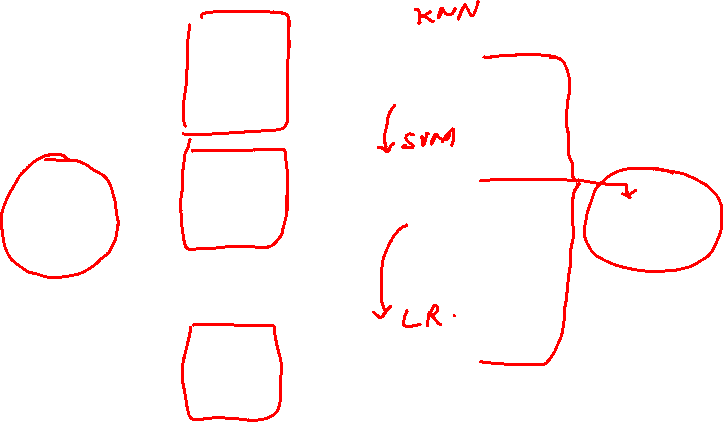 KNN
SVM
LR.